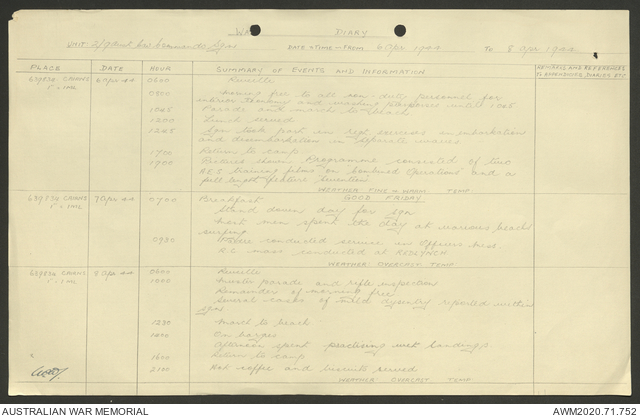 WAR DIARY
UNIT: 2/9 Aust Cav Commando Sqn DATE & TIME - FROM 6 Apr 1944 TO 8 Apr 1944
PLACE DATE HOUR SUMMARY OF EVENTS AND INFORMATION REMARKS AND REFERENCES
TO APPENDICES, DIARIES ETC
639836 CAIRNS 6 Apr 44 0600 Reveille
1" = 1 ML 0800 Morning free to all non-duty personnel for
interior and washing purposes until 1045
1045 Parade and march to beach
1200 Lunch served
1245 Sqn took part in regt exercises in embarkation
and disembarkation in separate waves
1700 Return to camp
1900 Pictures shown. Programme consisted of two
training films on "Combined Operations" and a
full length feature
WEATHER FINE & WARM TEMP
639836 CAIRNS 7 Apr 44 0700 Breakfast GOOD FRIDAY
1" = 1 ML Stand down day for sqn
Most men spent the day at various beaches
surfing
0930 Padre conducted service in Officers mess
R.C. mass conducted at REDLYNCH
WEATHER: OVERCAST TEMP
639836 CAIRNS 8 Apr 44 0600 Reveille
1" = 1 ML 1000 Muster parade and rifle inspection
Remainder of morning free
Several cases of mild dysentry reported within
sqn
1230 March to beach
1400 On barges
Afternoon spent practising wet landings
1600 Return to camp
2100 Hot coffee and biscuits served
WEATHER: OVERCAST TEMP
AUSTRALIAN WAR MEMORIAL AWM2020.71.752